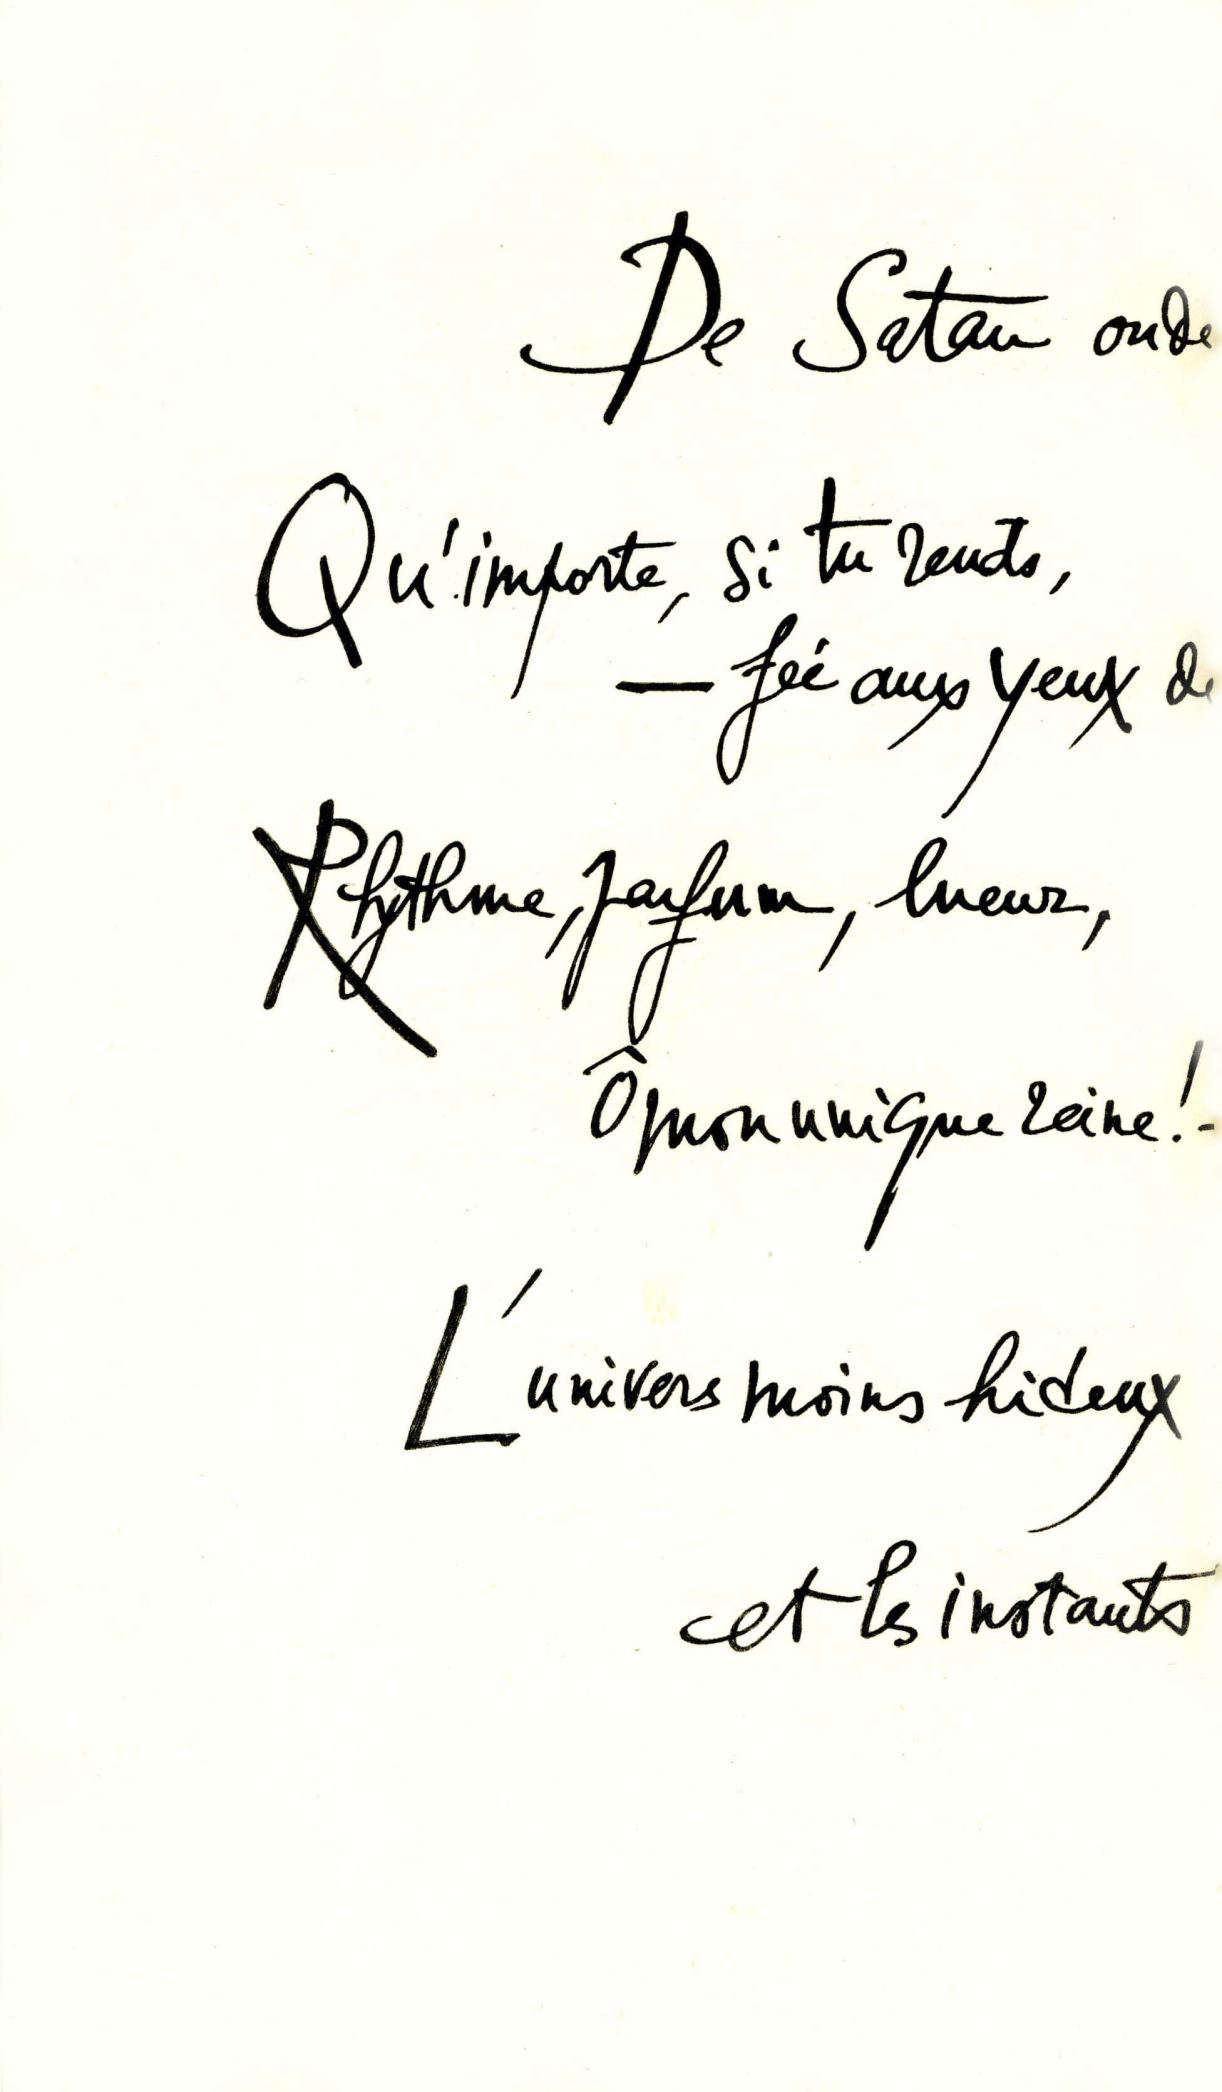 De Satan ou de
Qu'importe, si tu rends,
— fée aux yeux de
Rhythme, parfum, lueur,
Ô mon unique reine ! -
L'univers moins hideux
et les instants